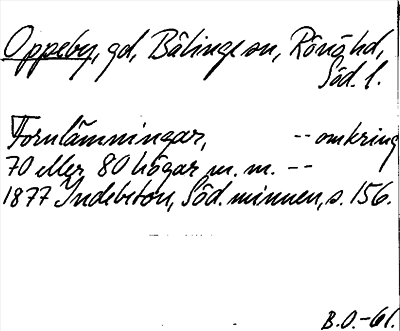 Oppeby, gd, Bälinge sn, Rönö hd,
Söd. l.
Fornlämningar, -- omkring
70 eller 80 högar m. m. --
1877 Indebetou, Söd. minnen, s. 156.
B.O.-61.